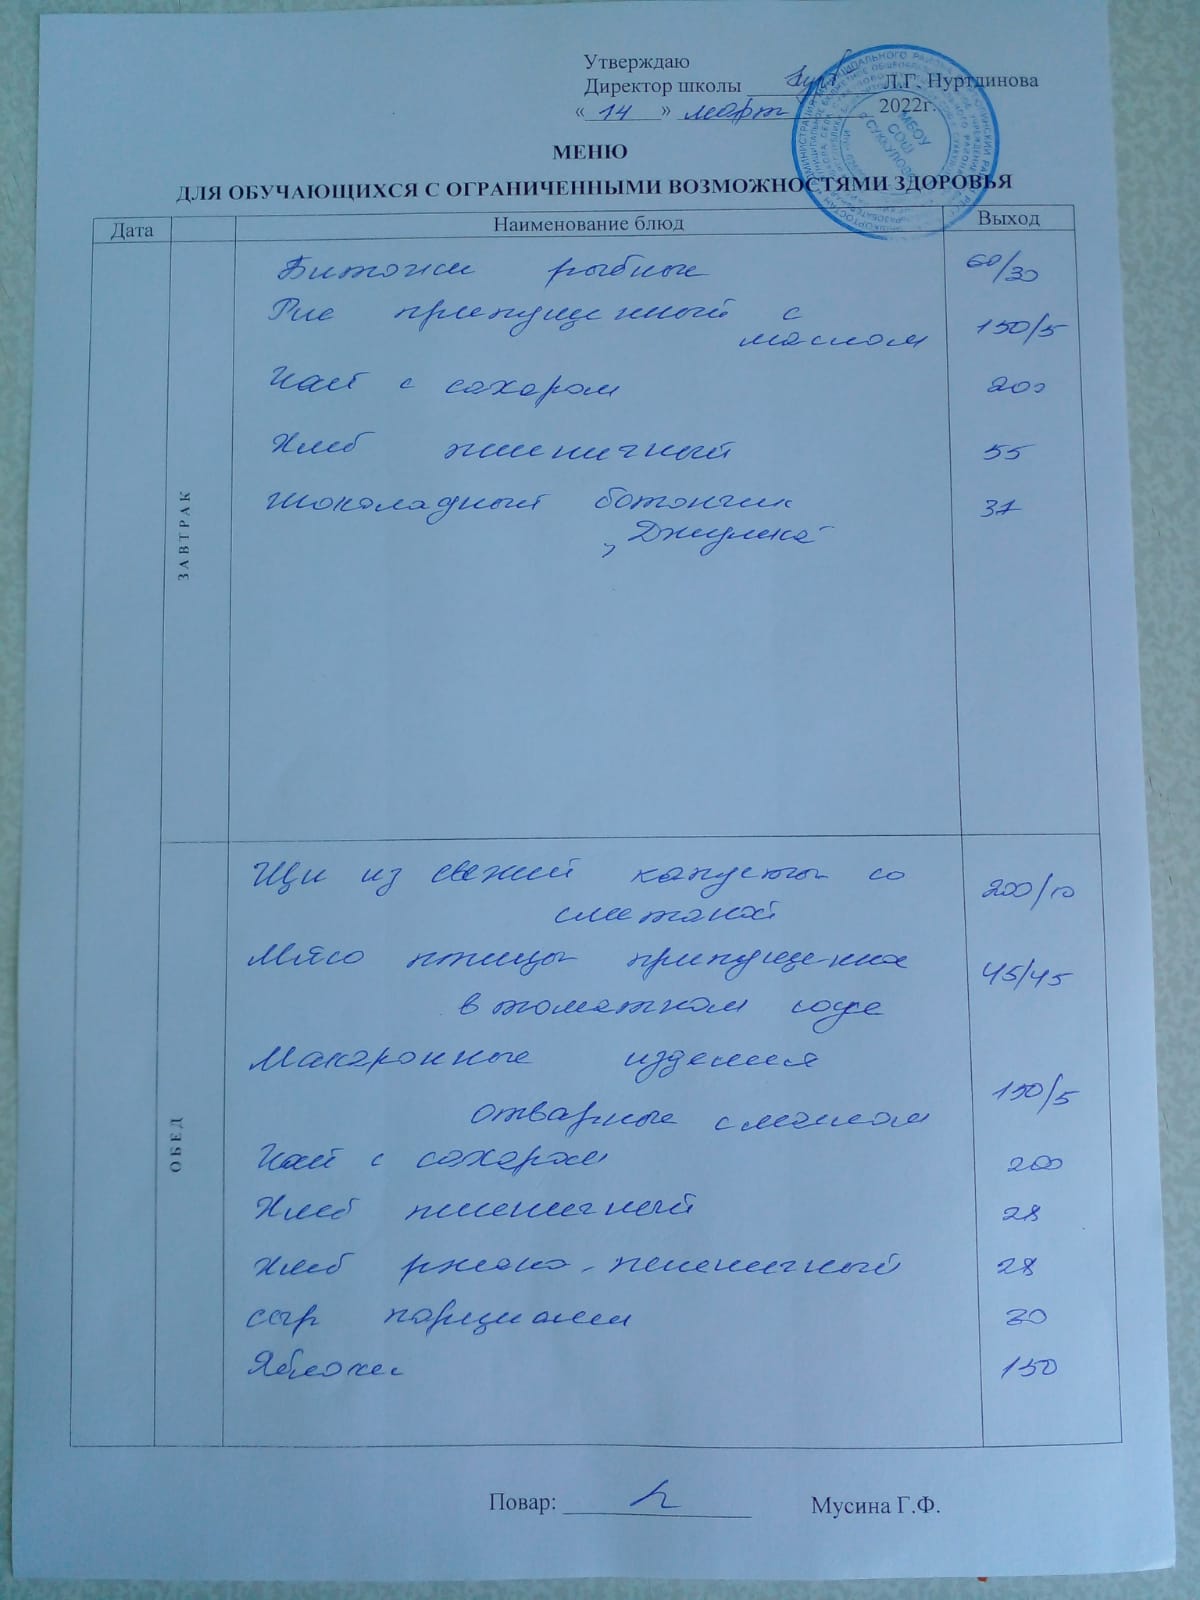 Утверждаю
Директор школы Л.Г. Нуртдинова
« 14 » март 2022г.
МЕНЮ
ДЛЯ ОБУЧАЮЩИХСЯ С ОГРАНИЧЕННЫМИ ВОЗМОЖНОСТЯМИ ЗДОРОВЬЯ
Дата Наименование блюд Выход
ЗАВТРАК
Биточки рыбные 60/30
Рис припущенный с
маслом 150/5
Чай с сахаром 200
Хлеб пшеничный 55
Шоколадный батончик 37
„Джулия“
ОБЕД
Щи из свежий капусты со 200/10
сметаной
Мясо птицы припущенная 45/45
в томатном соусе
Макаронные изделия
отварные с маслом 150/5
Чай с сахаром 200
Хлеб пшеничный 28
Хлеб ржано-пшеничный 28
сыр порциями 30
Яблоки 150
Повар: Мусина Г.Ф.
МБОУ
СОШ